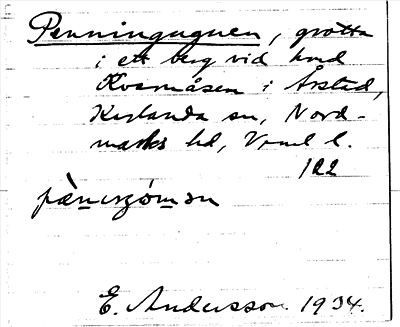 Penningugnen, grotta
i ett berg vid
Kvarnåsen i Årstad,
Kyrlanda sn, Nord-
marks hd, Vrml l.
122
E. Andersson 1934.